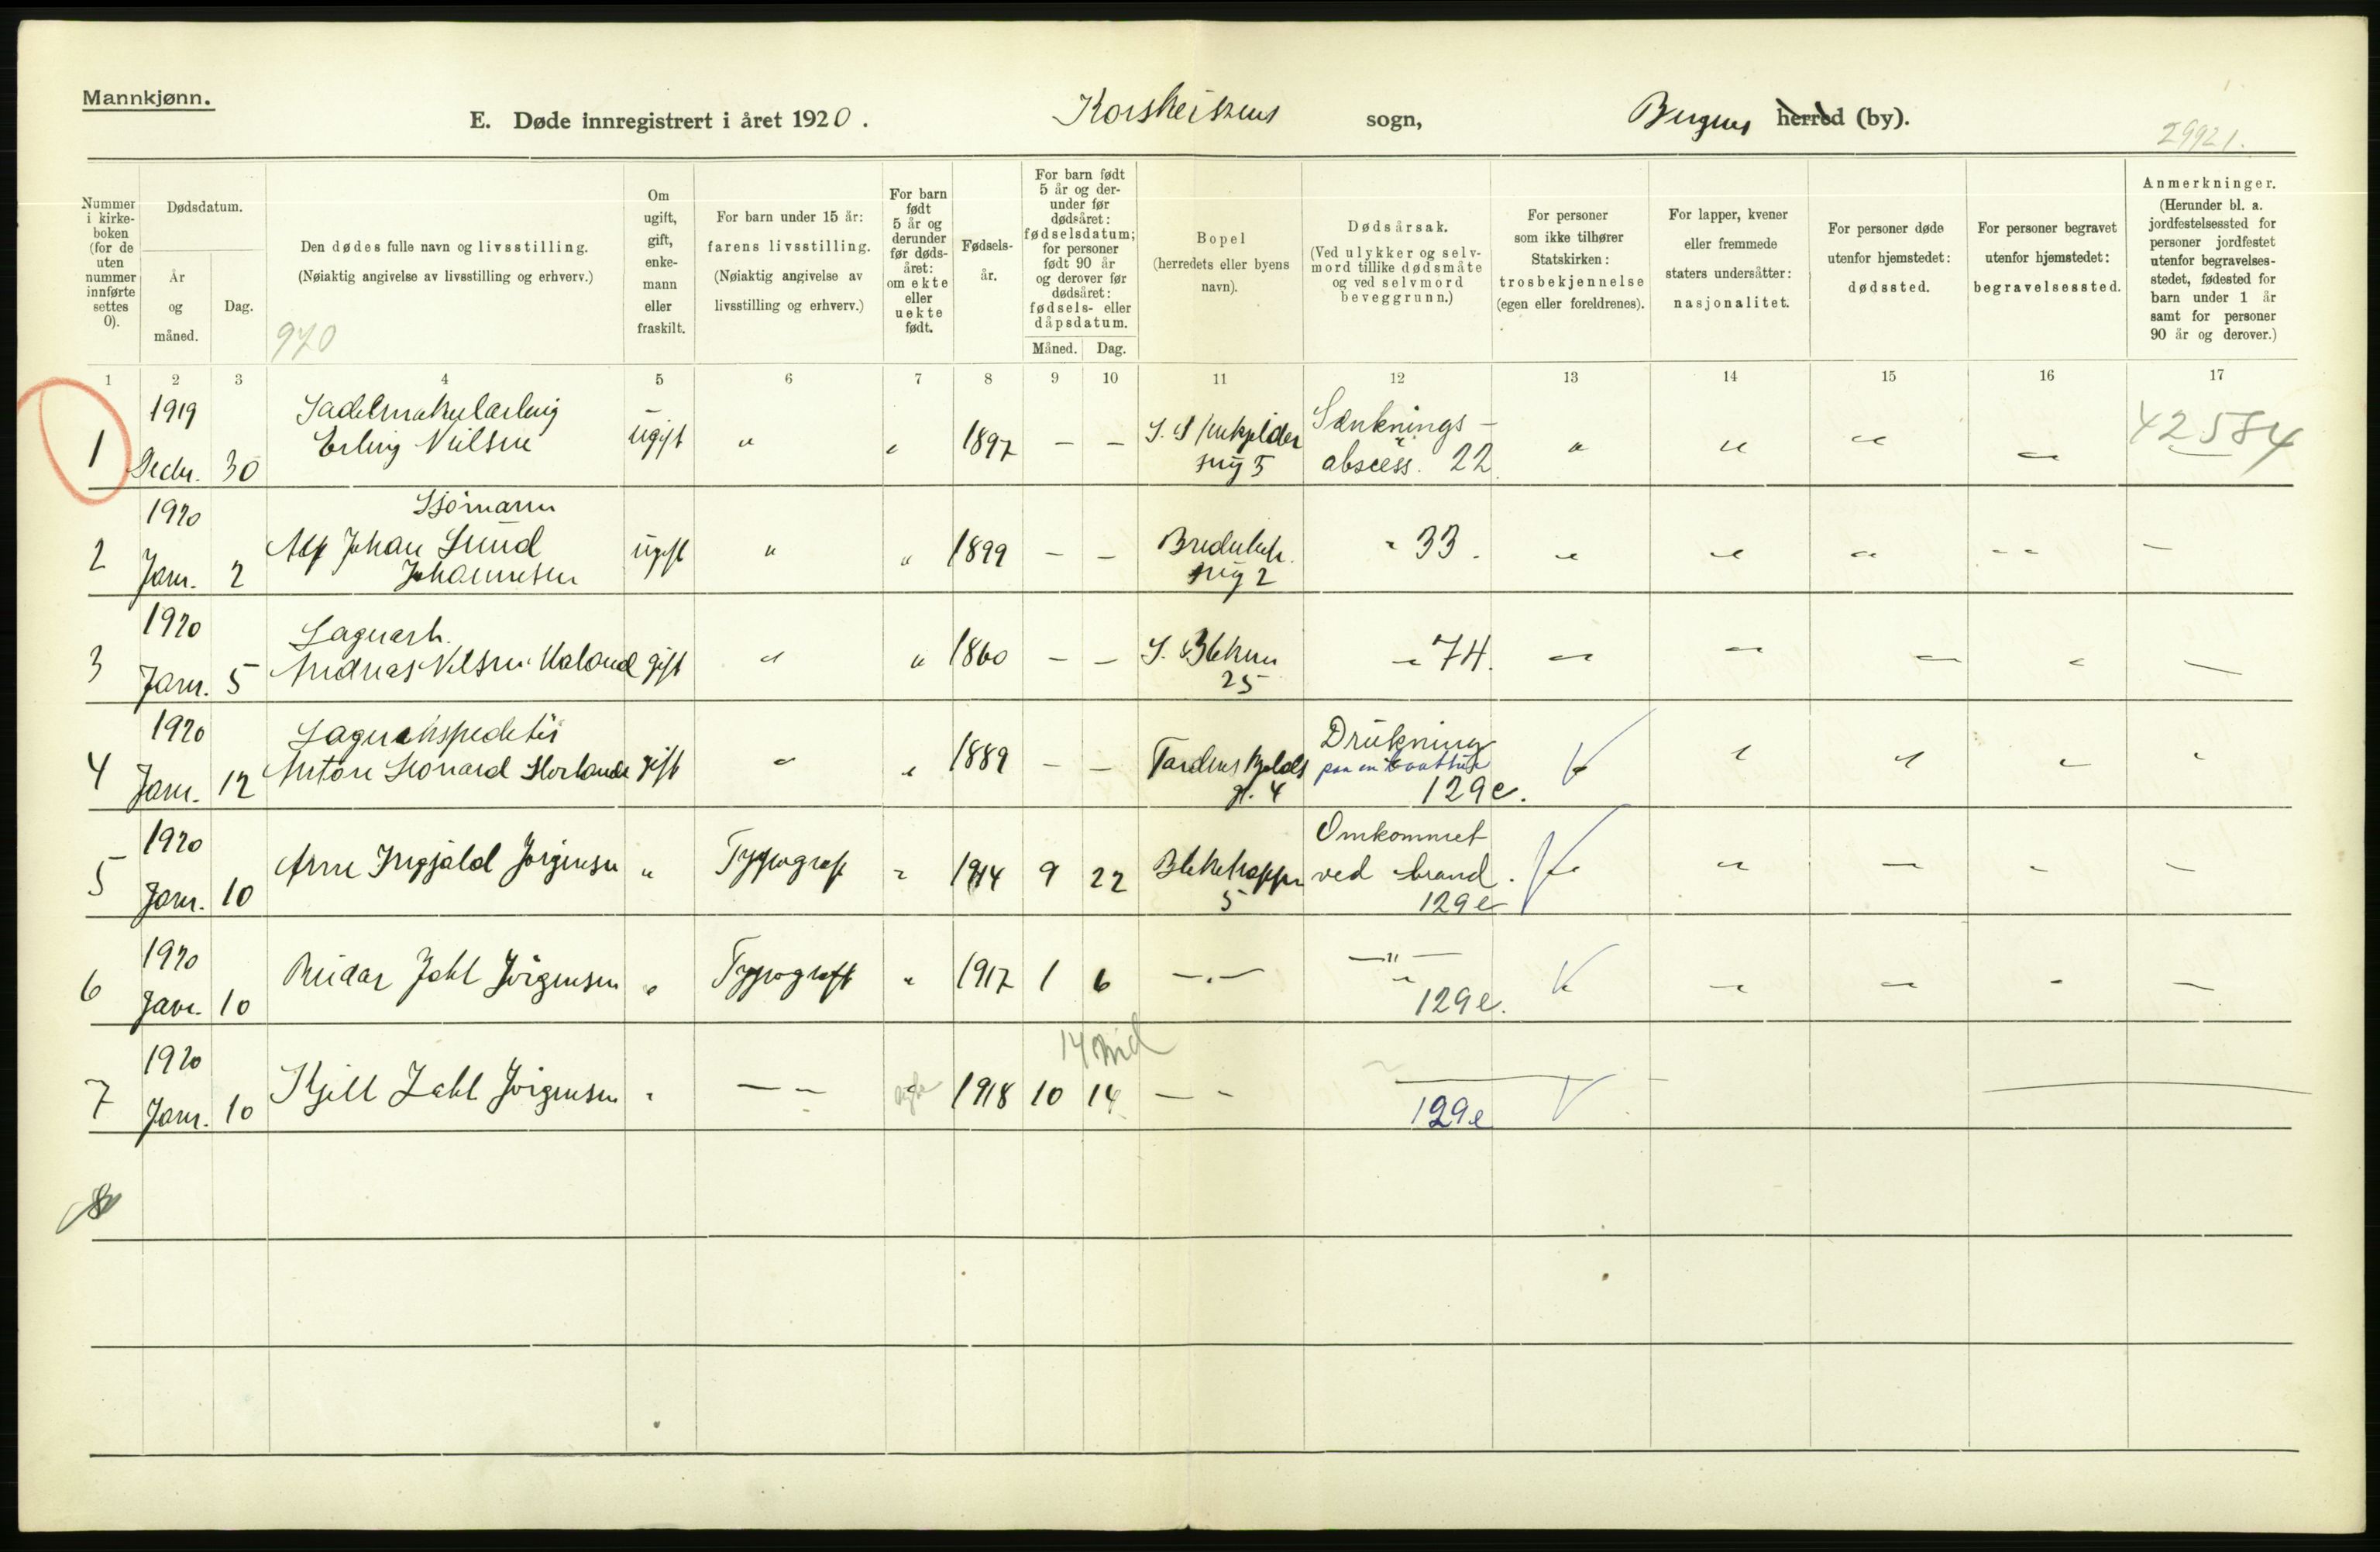 Mannkjønn.
E. Døde innregistrert i året 1920. Korskirkens sogn, Bergens herred (by).
29921.
Nummer i kirke-boken (for de uten nummer innførte settes 0).
Dødsdatum.
År og måned.
Dag.
Den dødes fulle navn og livsstilling.
(Nøiaktig angivelse av livsstilling og erhverv.)
970
Om ugift, gift, enke-mann eller fraskilt.
For barn under 15 år:
farens livsstilling.
(Nøiaktig angivelse av livsstilling og erhverv.)
For barn født 5 år og derunder før døds-året: om ekte eller uekte født.
Fødsels-år.
For barn født 5 år og der-under før dødsåret: fødselsdatum; for personer født 90 år og derover før dødsåret: fødsels- eller dåpsdatum.
Måned. Dag.
Bopel
(herredets eller byens navn).
Dødsårsak.
(Ved ulykker og selv-mord tillike dødsmåte og ved selvmord beveggrunn.)
For personer som ikke tilhører Statskirken: trosbekjennelse (egen eller foreldrenes).
For lapper, kvener eller fremmede staters undersåtter: nasjonalitet.
For personer døde utenfor hjemstedet: dødssted.
For personer begravet utenfor hjemstedet: begravelsessted.
Anmerkninger.
(Herunder bl. a. jordfestelsessted for personer jordfestet utenfor begravelses-stedet, fødested for barn under 1 år samt for personer 90 år og derover.)
1 2 3 4 5 6 7 8 9 10 11 12 13 14 15 16 17
1919 Sadelmakerlærling Sænknings-
1 Decbr. 30 Erling Nielsen ugift " " 1897 - - smug 5 abscess. 22 " " " " 42584
1920 Sjömann
2 Janr. 2 Alf Johan Lund Johannesen ugift " " 1899 - - smug 2 " 33. " " " " -
1920 Lagerarb.
3 Janr. 5 Andreas Nilsen Kaland gift " " 1860 - - 25 " 74. " " " " -
1920 Lagerekspeditör Drukning
4 Janr. 12 Anton Leonard gift " " 1889 - - Tordenskjolds gt. 4 paa en baattur 129e. " " " " "
1920 Omkommet
5 Janr. 10 Arne Ingjald Jörgensen " Typograf " 1914 9 22 5 ved brand. 129e " " " " -
1920 -"-
6 Janr. 10 Reidar Johl Jörgensen " Typograf " 1917 1 6 -"- 129e. " " " " -
14 md
1920
7 Janr. 10 Kjell Zahl Jörgensen " - - 1918 10 14 - - 129e
8